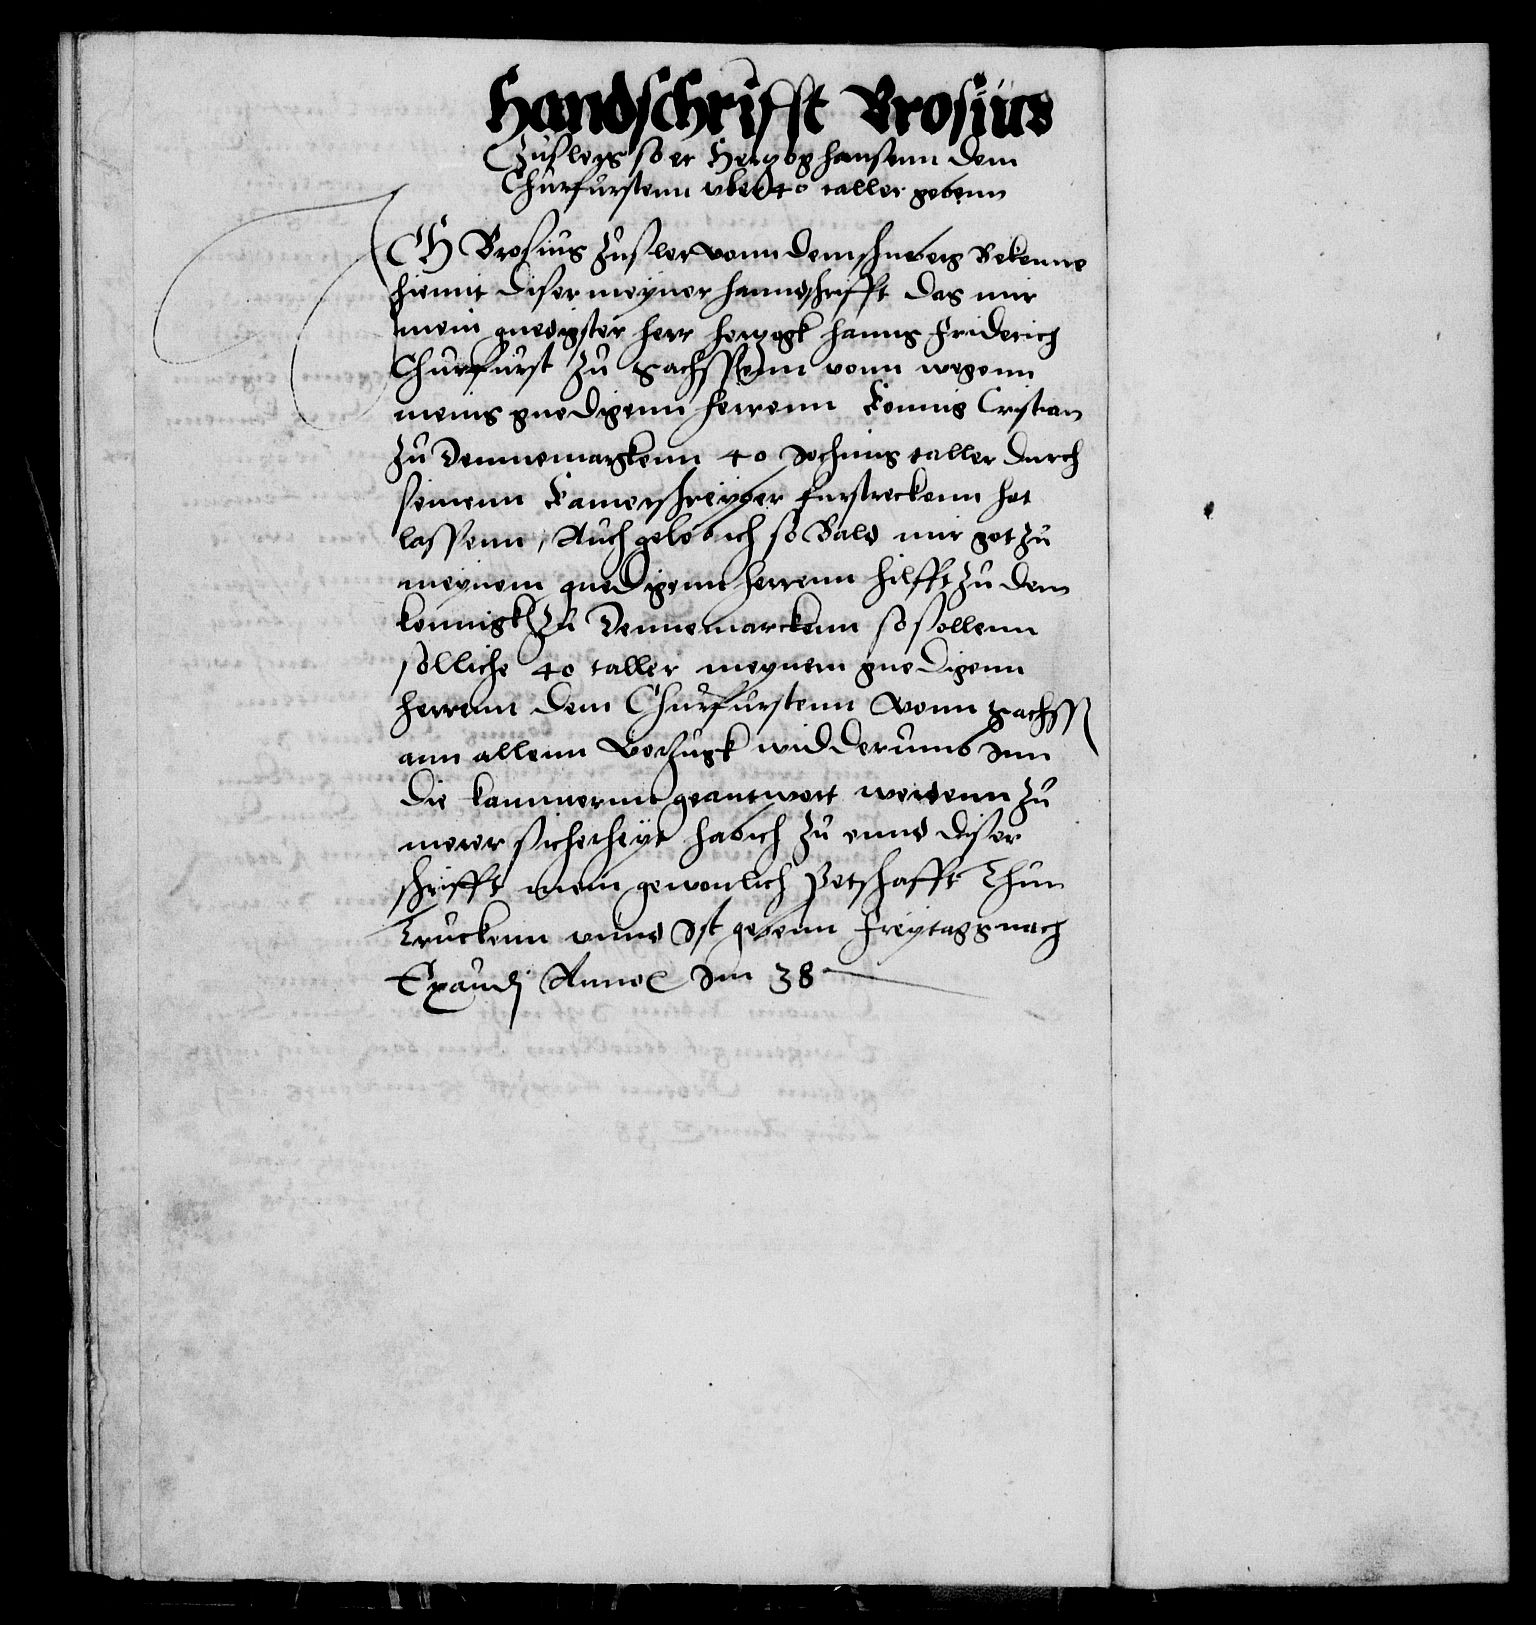 Handschrifft Brosius
Zuslers so er Hertzog hansenn dem
Churfurstenn uber 40 taller gebenn
ICH Brosius Zusler vonn dem shneberg Bekenne
hiemit diser meyner hanndschrifft das mir
mein gnedigster herr hertzogk hanns Friderich
Churfurst zu Sachssenn vonn wegenn
meins gnedigenn herrenn Konnig Cristian
zu Dennemargkenn 40 Jochims taller durch
seinenn Kamerschreyber furstreckenn hat
lassenn, Auch gelob ich so Bald mir got zu
meynem gnedigenn herrenn hilfft zu dem
konnigk zu Dennemarckenn so sollenn
solliche 40 taller meynem gnedigenn
herrenn dem Churfurstenn vonn Sachss
ann allenn vorzugk widderumb Inn
die kammernn geantwort werdenn zu
merer sicherheyt hab ich zu ennd diser
schrifft mein gewonlich Petschafft thun
Truckenn unnd Ist gebenn Freytags nach
Exaudj Anno Im 38